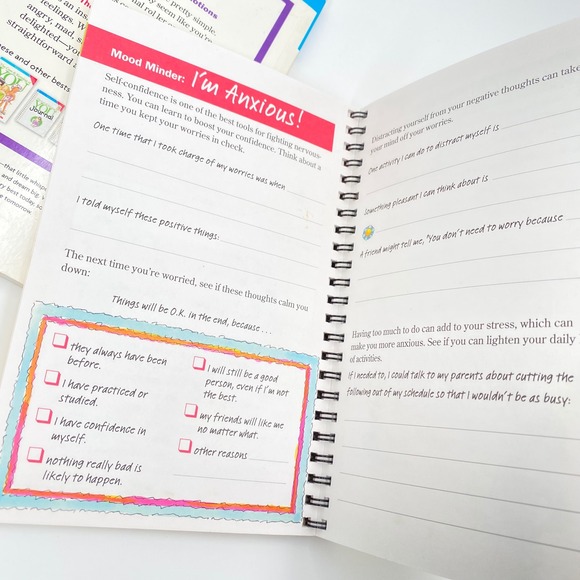 otions
pretty simple.
feelings.
angry, mad, s
delighted—yo
straightforward a
ese and other bests
YOU
Journal
—that little whisp
and dream big.
ry best today, so
e tomorrow.
Mood Minder: I'm Anxious!
Self-confidence is one of the best tools for fighting nervous-
ness. You can learn to boost your confidence. Think about a
time you kept your worries in check.
One time that I took charge of my worries was when
I told myself these positive things:
The next time you're worried, see if these thoughts calm you
down:
Things will be O.K. in the end, because . . .
they always have been
before.
I have practiced or
studied.
I have confidence in
myself.
nothing really bad is
likely to happen.
I will still be a good
person, even if I'm not
the best.
my friends will like me
no matter what.
other reasons
Distracting yourself from your negative thoughts can take
your mind off your worries.
One activity I can do to distract myself is
Something pleasant I can think about is
A friend might tell me, "You don't need to worry because
Having too much to do can add to your stress, which can
make you more anxious. See if you can lighten your daily
of activities.
If I needed to, I could talk to my parents about cutting the
following out of my schedule so that I wouldn't be as busy: